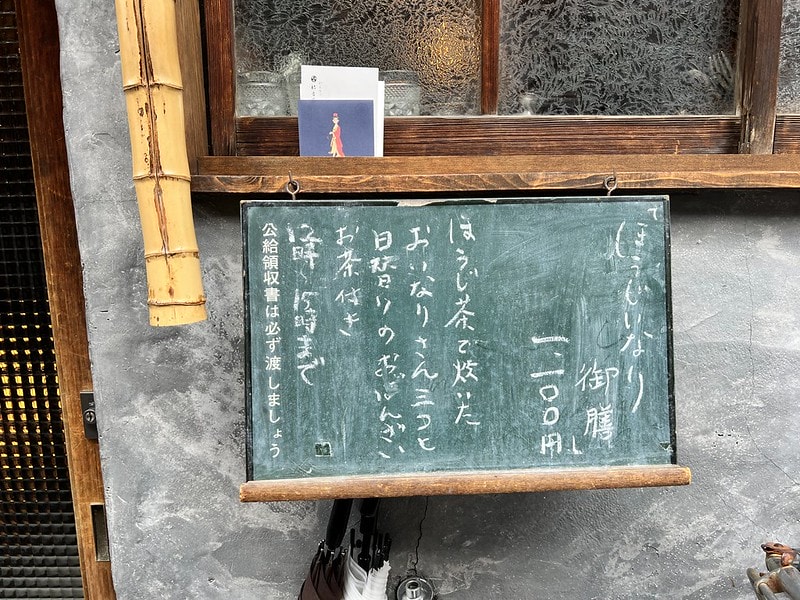 「ほうじいなり
御膳」
一、二〇〇円
ほうじ茶で炊いた
おいなりさん三つと
日替りのおばんざい
お茶付き
12時〜15時まで
公給領収書は必ず渡しましょう